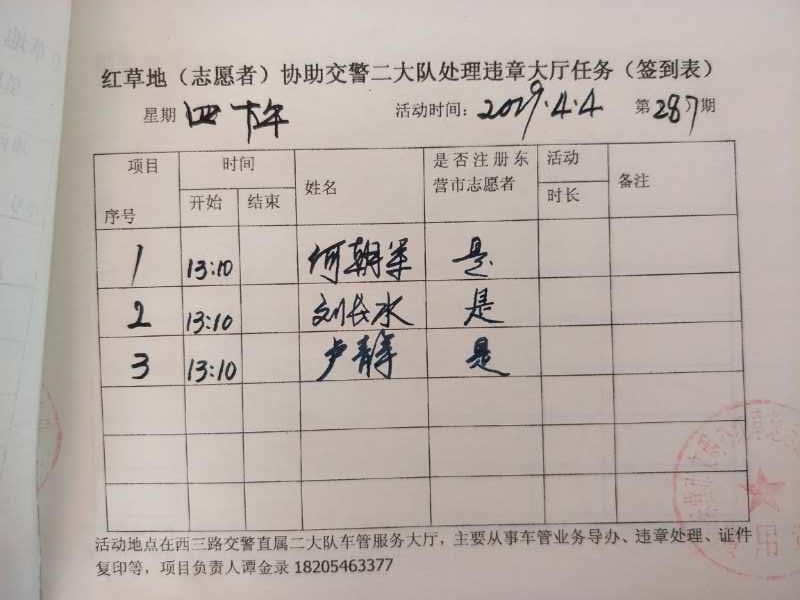 红草地（志愿者）协助交警二大队处理违章大厅任务（签到表）
星期 四 下午 活动时间: 2019.4.4 第 287 期
项目 时间 姓名 是否注册东营市志愿者 活动时长 备注
序号 开始 结束
1 13:10 何朝军 是
2 13:10 刘长水 是
3 13:10 卢静 是
活动地点在西三路交警直属二大队车管服务大厅，主要从事车管业务导办、违章处理、证件
复印等，项目负责人谭金录 18205463377